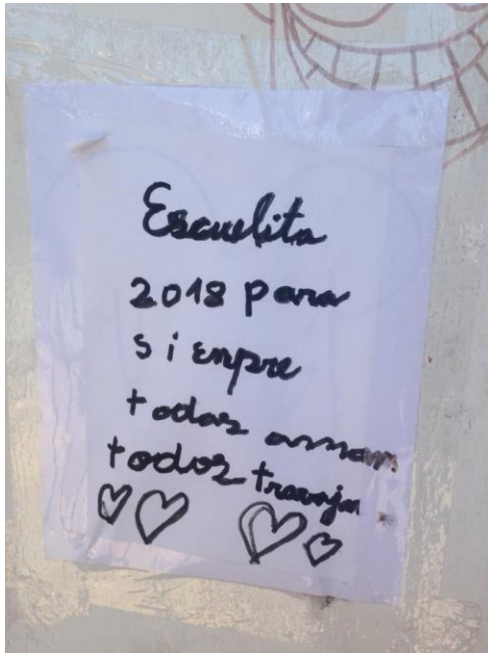 Escuelita
2018 para
siempre
todos aman
todos travajan